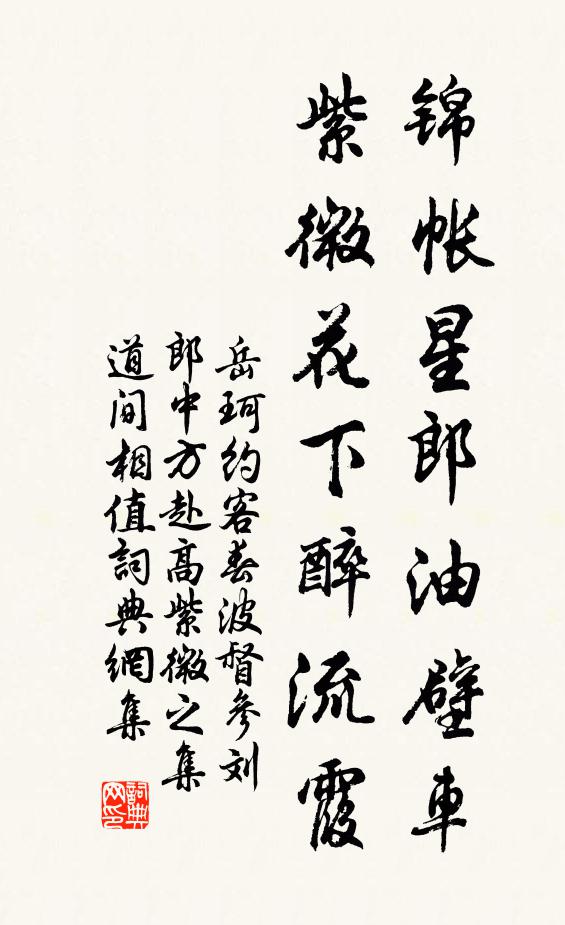 锦帐星郎油壁車
紫微花下醉流霞
岳珂约客春波督参刘
郎中方赴高紫微之集
道间相值詞典網集
詞典网印